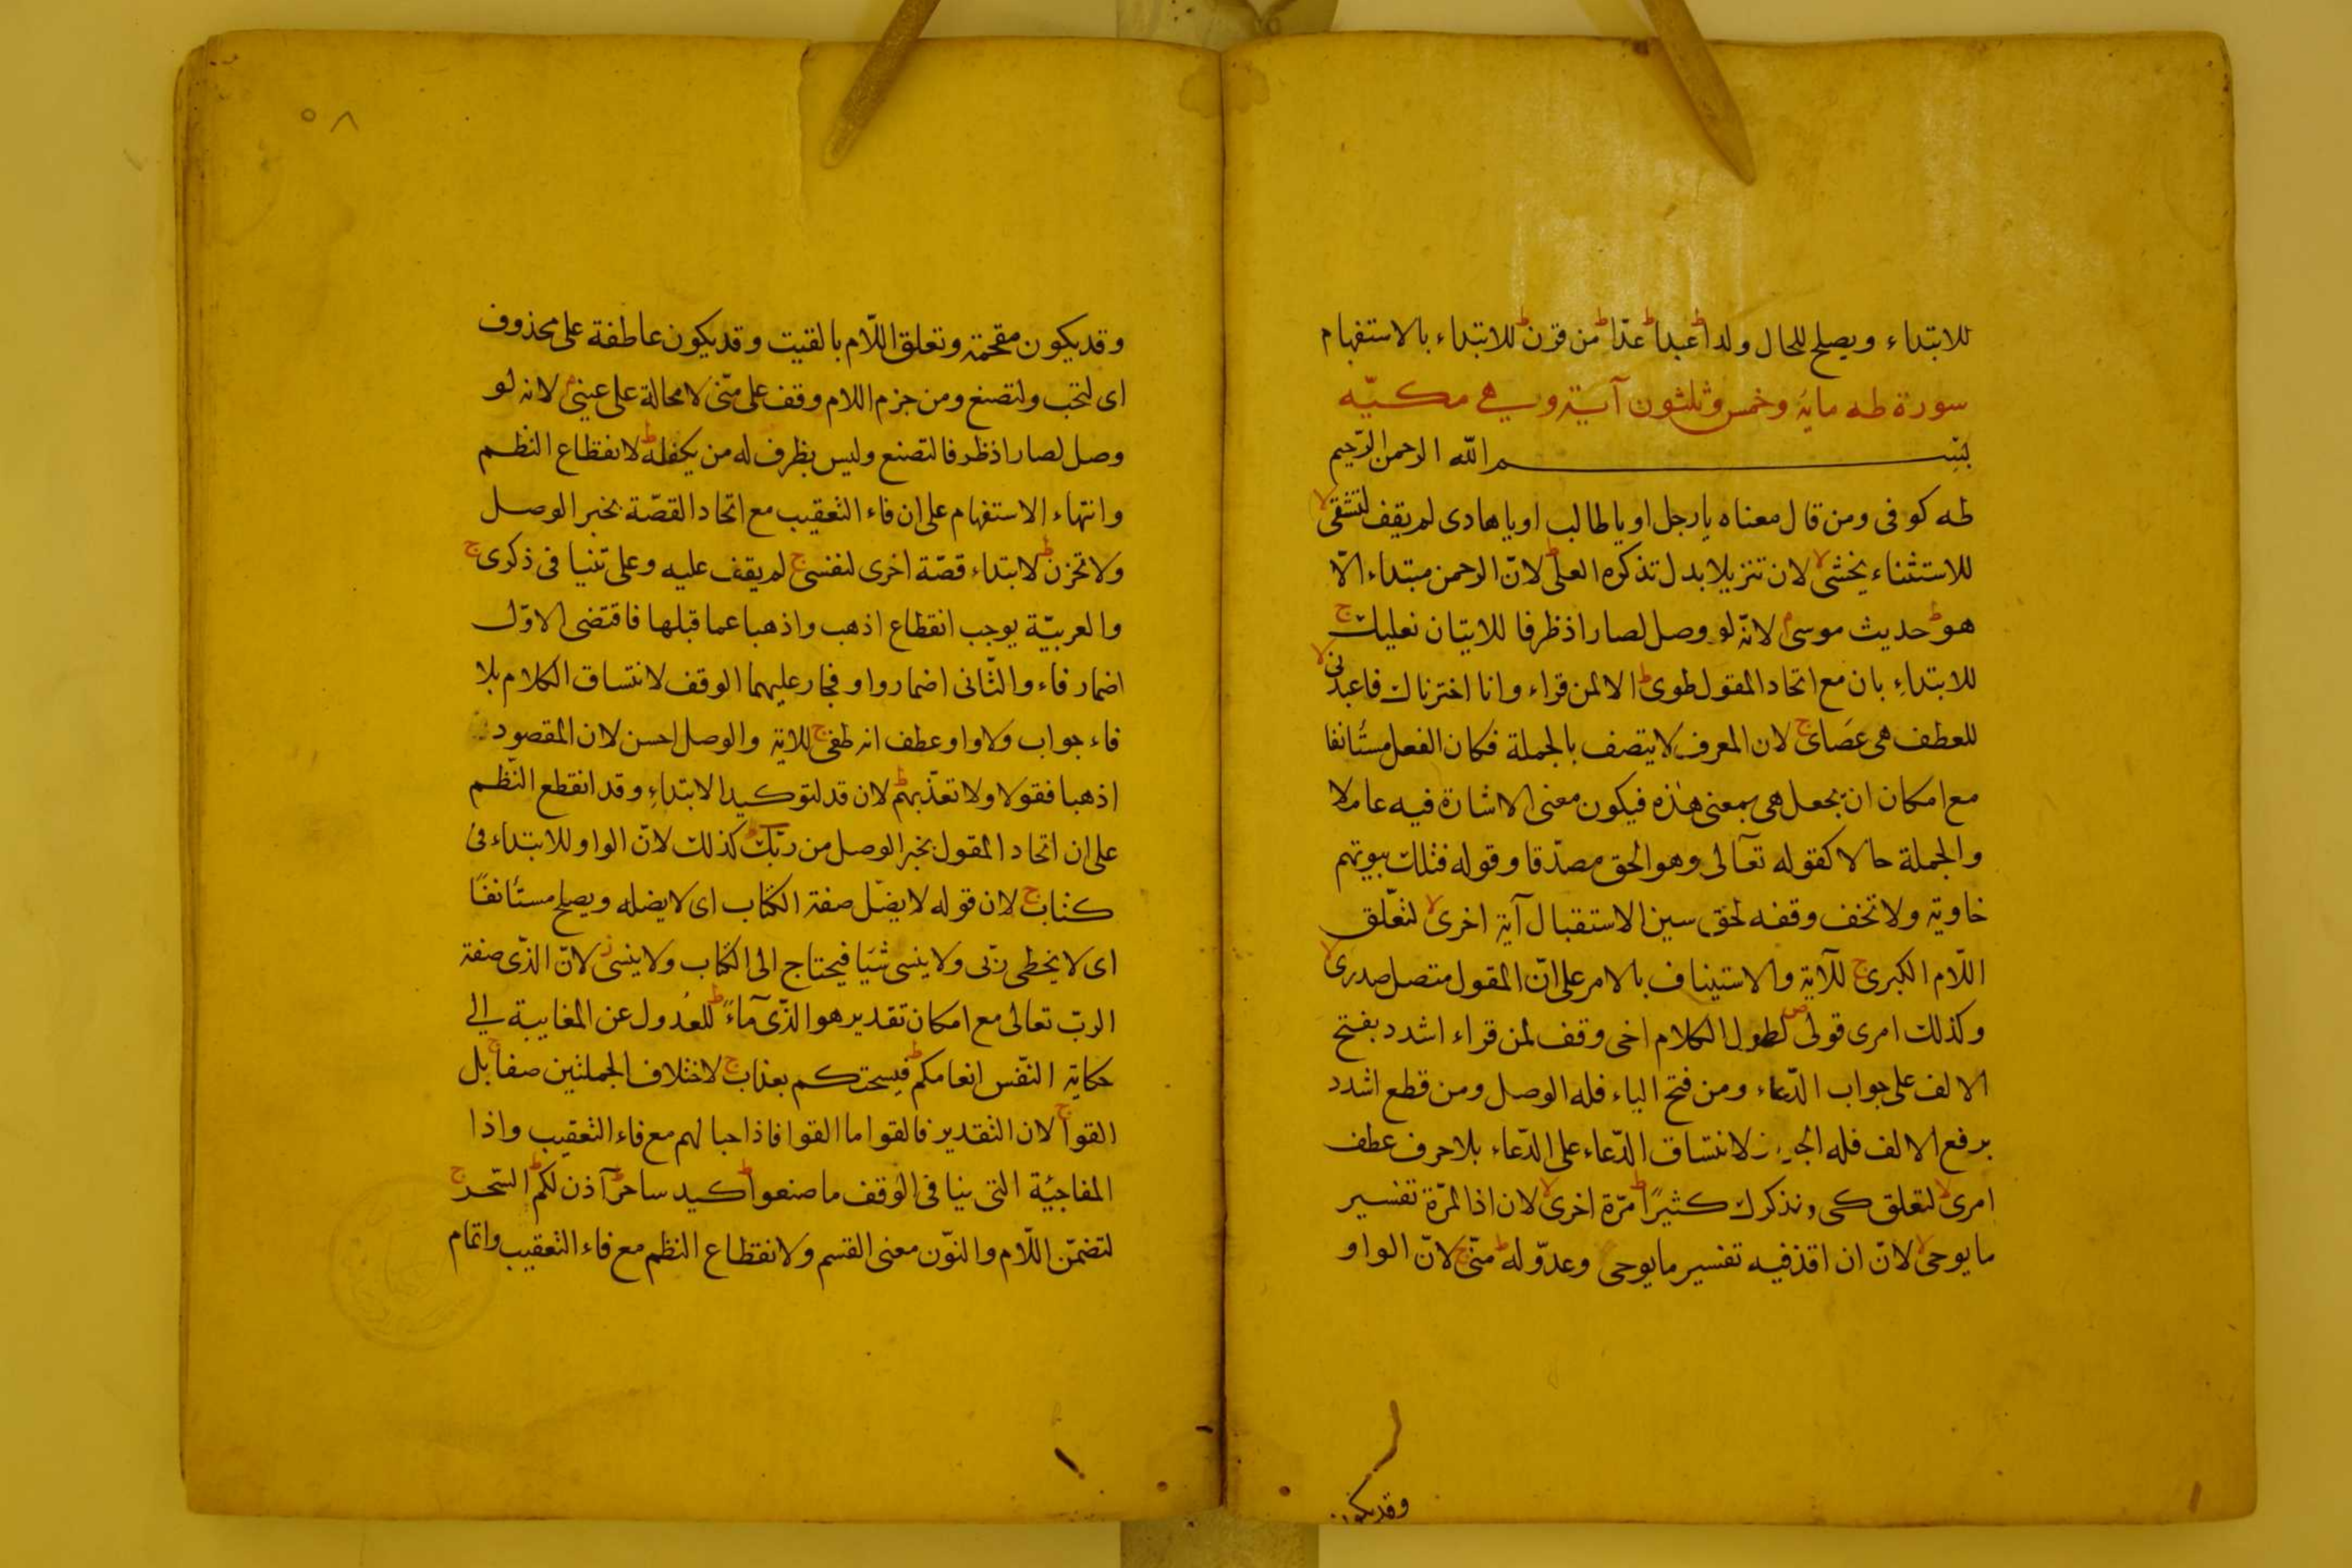 للابتداء ويصلح للحال ولدا ط عبدا ط عدّا ط من قرن ط للابتداء بالاستفهام
سورة طه مايه وخمس وثلثون آية وهي مكيّه
بسم الله الرحمن الرّحيم
طه كوفى ومن قال معناه يا رجل او يا طالب او يا هادى لم يقف لتشقى لا
للاستثناء يخشى لا لان تنزيلا بدل تذكرة العلى ط لانّ الرحمن مبتداء الّا
هو ط حديث موسى م لانّه لو وصل لصار اذ ظرفا للايتان نعليك ج
للابتداءِ بان مع اتحاد المقول طوى ط الا لمن قراء وانا اخترناك فاعبدنى لا
للعطف هى عصَاى ج لان المعرف لا يتصف بالجملة فكان الفعل مستانفا
مع امكان ان يجعل هى بمعنى هذه فيكون معنى الاشارة فيه عاملا
والجملة حالا كقوله تعالى وهو الحق مصدّقا وقوله فتلك بيوتهم
خاوية ولا تخف وقفه لحق سين الاستقبال آية اخرى لا لتعّلق
اللّام الكبرى ج للآية والاستيناف بالامر على انّ المقول متصل صدرى لا
وكذلك امرى قولى ص لطول الكلام اخى وقف لمن قراء اشدد بفتح
الالف على جواب الدّعاء ومن فتح الياء فله الوصل ومن قطع اشدد
برفع الالف فله لانتساق الدّعاء على الدّعاء بلا حرف عطف
امرى لا لتعلق كى ونذكرك كثيرًا ط مرّة اخرى لا لان اذ المرّة تفسير
ما يوحى لا لانّ ان اقذفيه تفسير ما يوحى وعدوّ له ط منّى ج لانّ الواو
وقد يكون
٥٨
وقد يكون مقحمة وتعلق اللّام بالقيت وقد يكون عاطفة على محذوف
اى لتحب ولتصنع ومن جزم اللام وقف على منّى لا محالة على عينى م لانه لو
وصل لصار اذ ظرفا لتصنع وليس بظرف له من يكفله ط لانقطاع النظم
وانتهاء الاستفهام على ان فاء التعقيب مع اتحاد القصّة بخبر الوصل
ولا تحزن ط لابتداء قصّة اخرى لنفسى ج لم يقف عليه وعلى تنيا فى ذكرى ج
والعربيّة يوجب انقطاع اذهب واذهبا عما قبلها فاقتضى الاوّل
اضمار فاء والثّانى اضمار واو فجار عليهما الوقف لانتساق الكلام بلا
فاء جواب ولا واو عطف انه طغى ج للاية والوصل احسن لان المقصود
اذهبا فقولا ولا تعذّبهم ط لان قد لتوكيد الابتداءِ وقد انقطع النّظم
على ان اتحاد المقول بخبر الوصل من ربّك كذلك لانّ الواو للابتداء فى
كتاب ج لان قوله لا يضّل صفة الكتاب اى لا يضله ويصلح مستأنفًا
اى لا يخطى ربّى ولا ينسى شَيا فيحتاج الى الكتاب ولا ينسى ز لانّ الذّى صفة
الربّ تعالى مع امكان تقدير هو الذّى مآءً ط للعُدول عن المغايبة الى
حكاية النّفس انعامكم ط فيسحتكم بعذاب ج لاختلاف الجملتين صفا ج بل
القوا ج لان التقدير فالقوا ما القوا فاذا حبالهم مع فاء التعقيب واذا
المفاجيّة التى ينافى الوقف ما صنعوا ط كيد ساحر ط آذن لكم ط السّحر ج
لتضمّن اللّام والنوّن معنى القسم ولانقطاع النظم مع فاء التعقيب واتمام